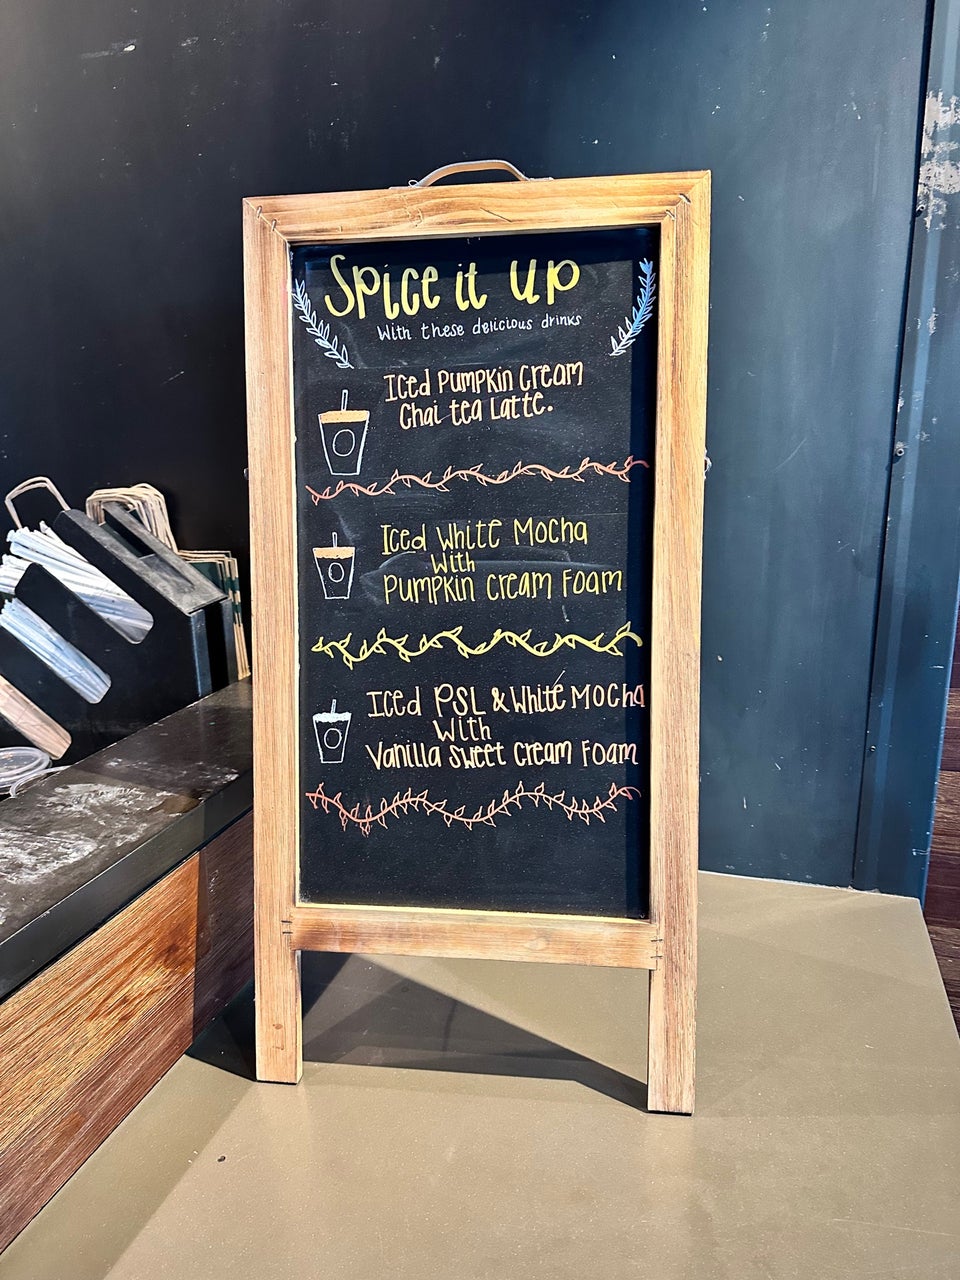 Spice it up
With these delicious drinks
Iced Pumpkin Cream
Chai tea Latte.
Iced White Mocha
With
Pumpkin Cream Foam
Iced PSL & White Mocha
With
Vanilla Sweet Cream Foam